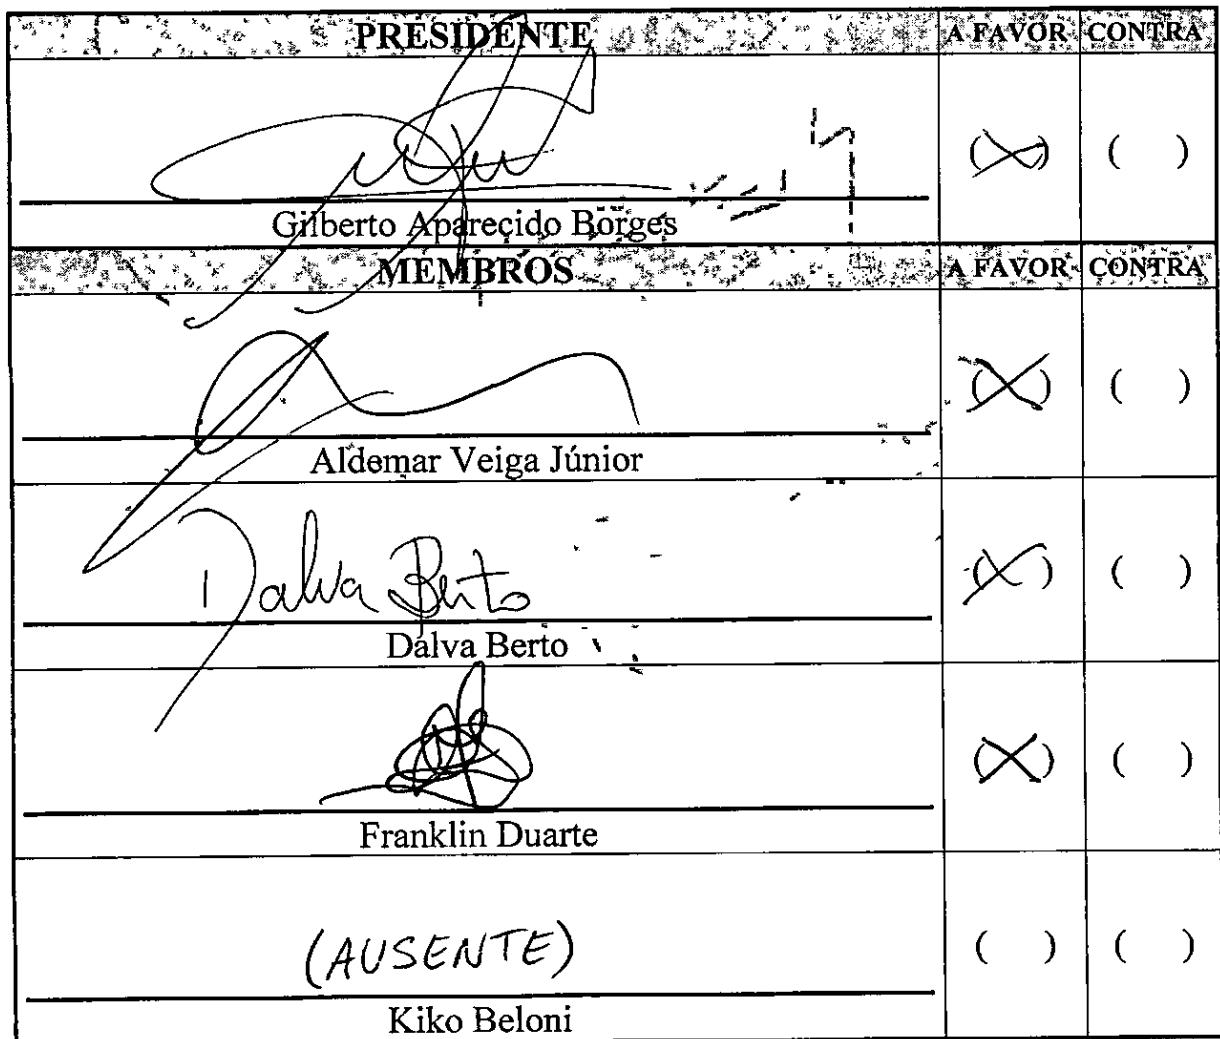 PRESIDENTE A FAVOR CONTRA
(X) ( )
Gilberto Aparecido Borges
MEMBROS A FAVOR CONTRA
(X) ( )
Aldemar Veiga Júnior
Dalva Berto (X) ( )
Dalva Berto
(X) ( )
Franklin Duarte
(AUSENTE) ( ) ( )
Kiko Beloni